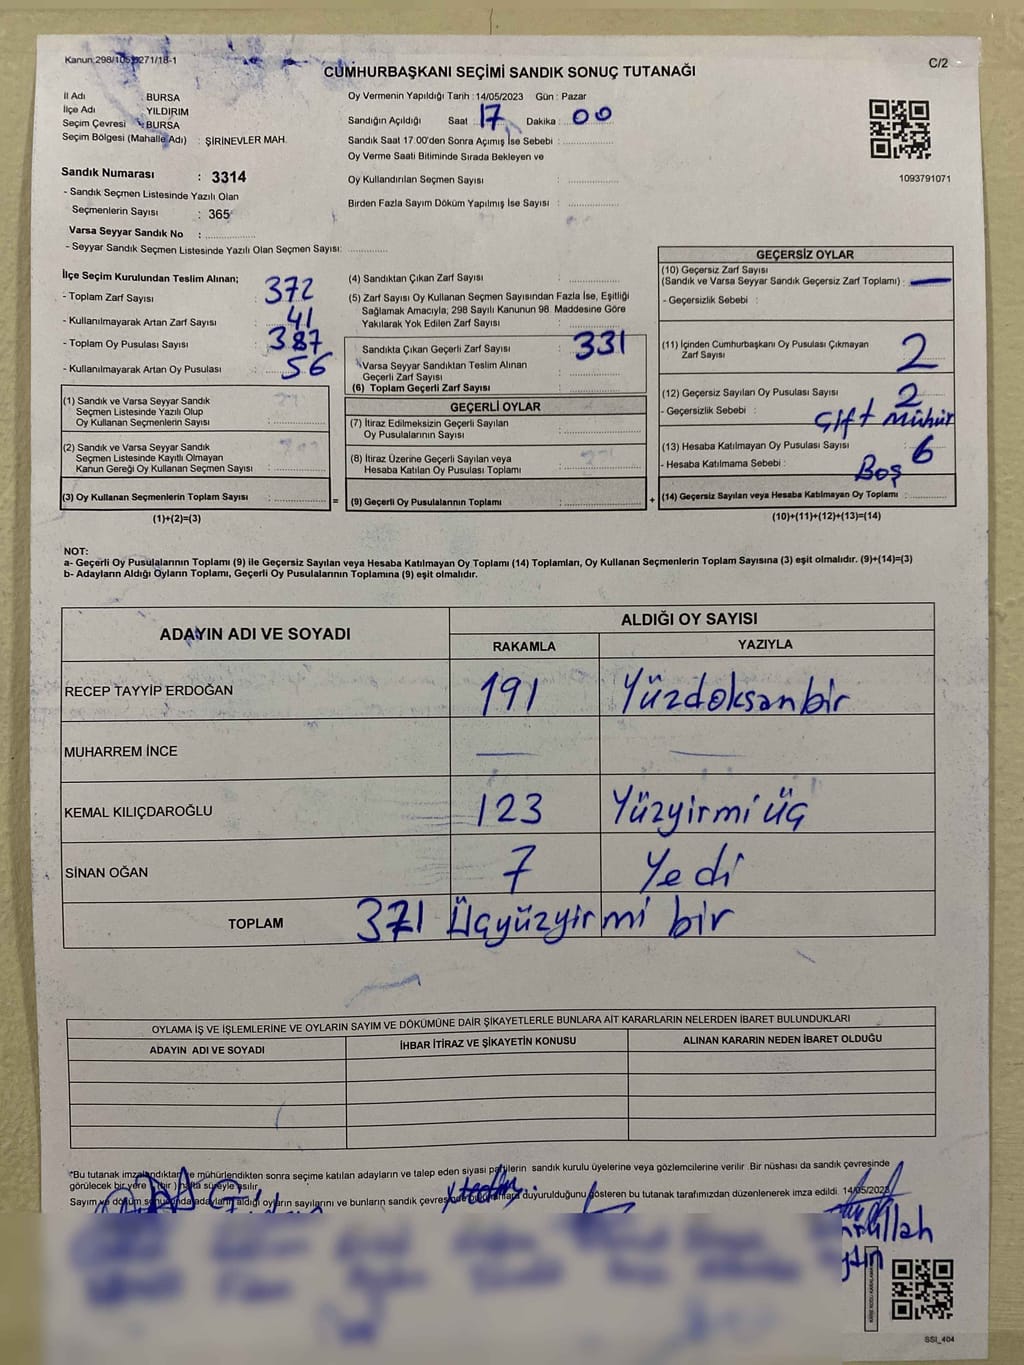 Kanun:298/105,271/18-1
C/2
CUMHURBAŞKANI SEÇİMİ SANDIK SONUÇ TUTANAĞI
İl Adı BURSA
İlçe Adı YILDIRIM
Seçim Çevresi BURSA
Seçim Bölgesi (Mahalle Adı) : ŞİRİNEVLER MAH.
Sandık Numarası : 3314
- Sandık Seçmen Listesinde Yazılı Olan
Seçmenlerin Sayısı : 365
Varsa Seyyar Sandık No :
- Seyyar Sandık Seçmen Listesinde Yazılı Olan Seçmen Sayısı:
Oy Vermenin Yapıldığı Tarih : 14/05/2023 Gün : Pazar
Sandığın Açıldığı Saat : 17 Dakika : 00
Sandık Saat 17:00'den Sonra Açımış İse Sebebi :
Oy Verme Saati Bitiminde Sırada Bekleyen ve
Oy Kullandırılan Seçmen Sayısı :
Birden Fazla Sayım Döküm Yapılmış İse Sayısı :
1093791071
İlçe Seçim Kurulundan Teslim Alınan;
- Toplam Zarf Sayısı : 372
- Kullanılmayarak Artan Zarf Sayısı : 41
- Toplam Oy Pusulası Sayısı : 387
- Kullanılmayarak Artan Oy Pusulası : 56
(1) Sandık ve Varsa Seyyar Sandık
Seçmen Listesinde Yazılı Olup
Oy Kullanan Seçmenlerin Sayısı :
(2) Sandık ve Varsa Seyyar Sandık
Seçmen Listesinde Kayıtlı Olmayan
Kanun Gereği Oy Kullanan Seçmen Sayısı :
(3) Oy Kullanan Seçmenlerin Toplam Sayısı : =
(1)+(2)=(3)
(4) Sandıktan Çıkan Zarf Sayısı :
(5) Zarf Sayısı Oy Kullanan Seçmen Sayısından Fazla İse, Eşitliği
Sağlamak Amacıyla; 298 Sayılı Kanunun 98. Maddesine Göre
Yakılarak Yok Edilen Zarf Sayısı :
Sandıkta Çıkan Geçerli Zarf Sayısı : 331
Varsa Seyyar Sandıktan Teslim Alınan
Geçerli Zarf Sayısı :
(6) Toplam Geçerli Zarf Sayısı :
GEÇERLİ OYLAR
(7) İtiraz Edilmeksizin Geçerli Sayılan
Oy Pusulalarının Sayısı :
(8) İtiraz Üzerine Geçerli Sayılan veya
Hesaba Katılan Oy Pusulası Toplamı :
(9) Geçerli Oy Pusulalarının Toplamı : +
GEÇERSİZ OYLAR
(10) Geçersiz Zarf Sayısı
(Sandık ve Varsa Seyyar Sandık Geçersiz Zarf Toplamı) : —
- Geçersizlik Sebebi :
(11) İçinden Cumhurbaşkanı Oy Pusulası Çıkmayan
Zarf Sayısı : 2
(12) Geçersiz Sayılan Oy Pusulası Sayısı : 2
- Geçersizlik Sebebi : Çift Mühür
(13) Hesaba Katılmayan Oy Pusulası Sayısı : 6
- Hesaba Katılmama Sebebi : Boş
(14) Geçersiz Sayılan veya Hesaba Katılmayan Oy Toplamı :
(10)+(11)+(12)+(13)=(14)
NOT:
a- Geçerli Oy Pusulalarının Toplamı (9) ile Geçersiz Sayılan veya Hesaba Katılmayan Oy Toplamı (14) Toplamları, Oy Kullanan Seçmenlerin Toplam Sayısına (3) eşit olmalıdır. (9)+(14)=(3)
b- Adayların Aldığı Oyların Toplamı, Geçerli Oy Pusulalarının Toplamına (9) eşit olmalıdır.
ADAYIN ADI VE SOYADI ALDIĞI OY SAYISI
RAKAMLA YAZIYLA
RECEP TAYYİP ERDOĞAN 191 Yüzdoksanbir
MUHARREM İNCE — —
KEMAL KILIÇDAROĞLU 123 Yüzyirmi üç
SİNAN OĞAN 7 Yedi
TOPLAM 321 Üçyüzyirmi bir
OYLAMA İŞ VE İŞLEMLERİNE VE OYLARIN SAYIM VE DÖKÜMÜNE DAİR ŞİKAYETLERLE BUNLARA AİT KARARLARIN NELERDEN İBARET BULUNDUKLARI
ADAYIN ADI VE SOYADI İHBAR İTİRAZ VE ŞİKAYETİN KONUSU ALINAN KARARIN NEDEN İBARET OLDUĞU
*Bu tutanak imzalandıktan ve mühürlendikten sonra seçime katılan adayların ve talep eden siyasi partilerin sandık kurulu üyelerine veya gözlemcilerine verilir. Bir nüshası da sandık çevresinde
görülecek bir yere (bir) hafta süreyle asılır.
Sayım ve döküm sonunda adayların aldığı oyların sayılarını ve bunların sandık çevresinde duyurulduğunu gösteren bu tutanak tarafımızdan düzenlenerek imza edildi. 14/05/2023
SSI_404